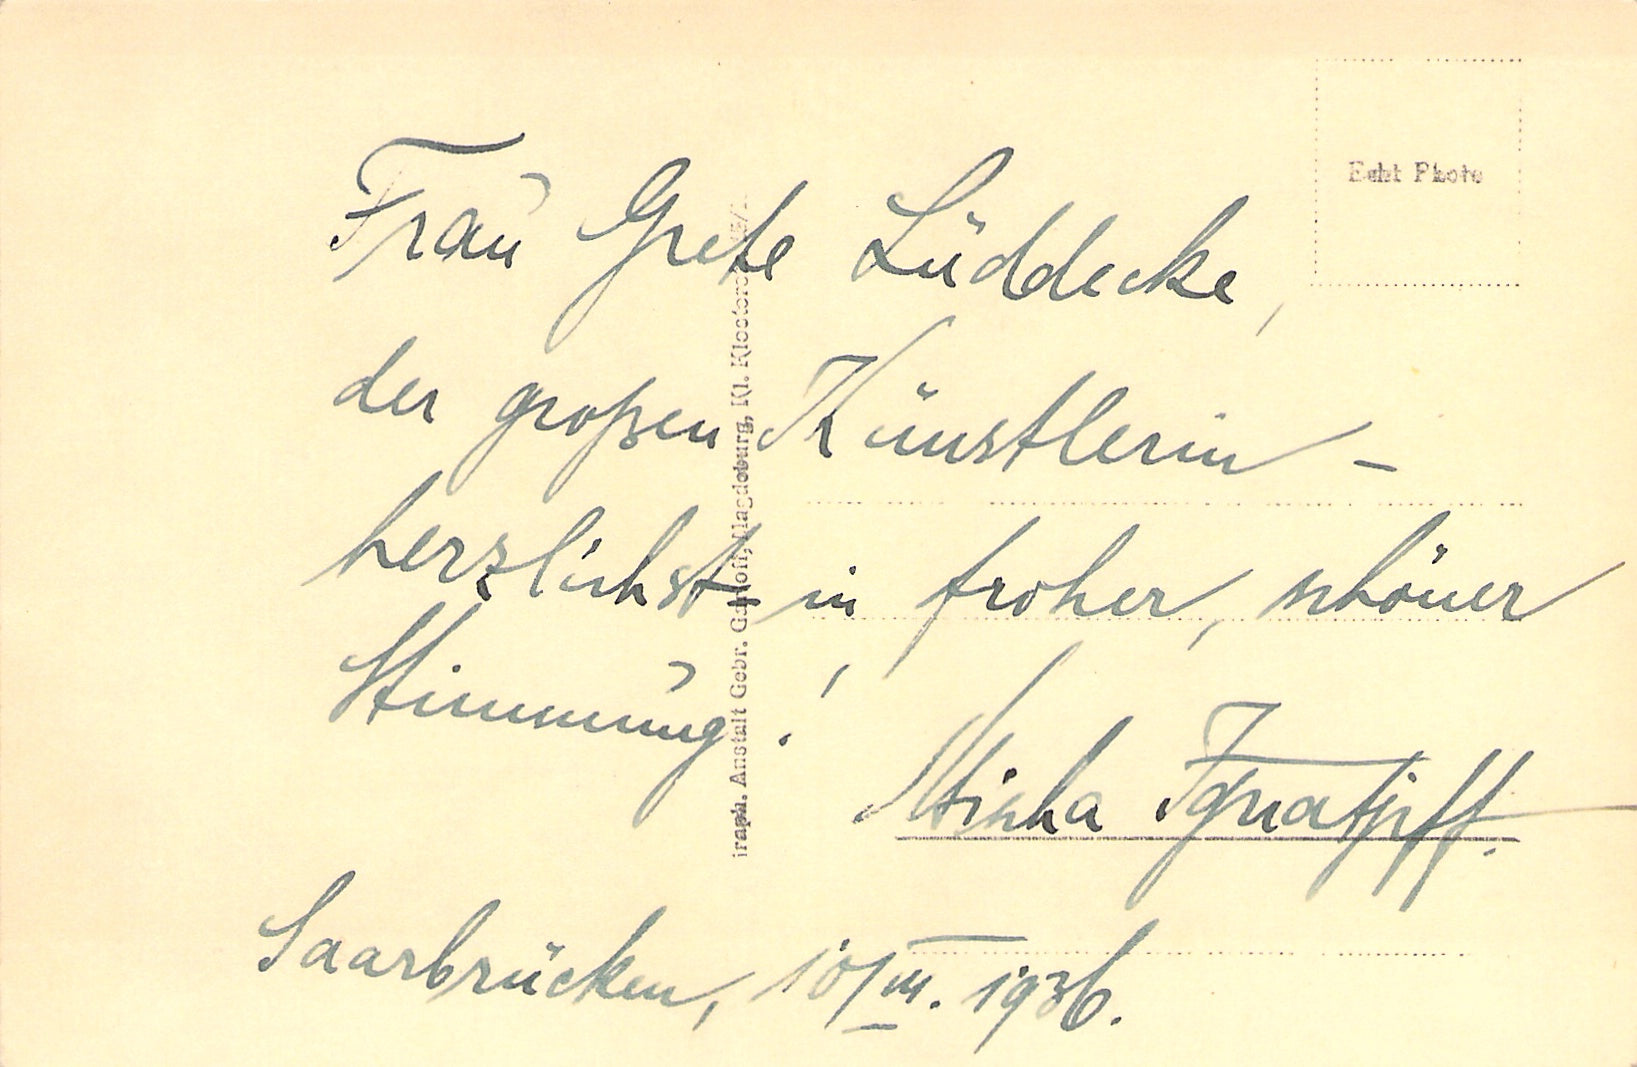 Echt Photo
Frau Grete Lüddecke,
der großen Künstlerin –
herzlichst in froher, schöner
Stimmung!
Mischa Ignatjiff.
Saarbrücken, 10/III. 1936.
Anstalt Gebr. Garloff, Magdeburg, Kl. Klosterstr.